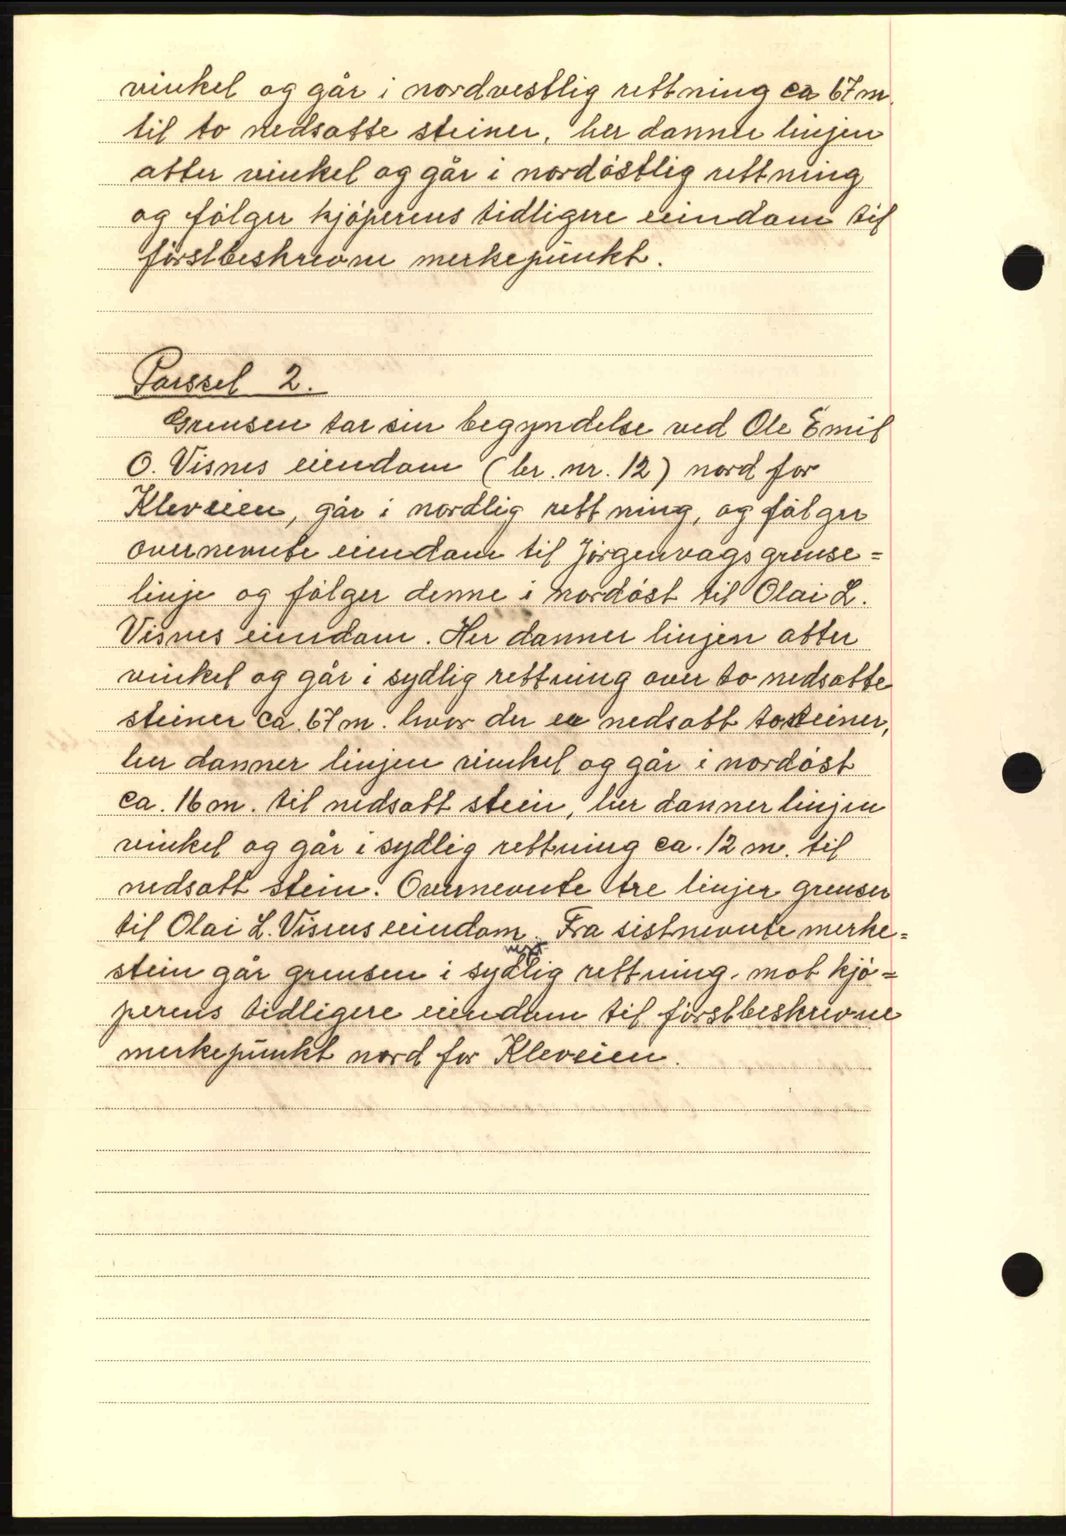 vinkel og går i nordvestlig rettning ca 67 m.
til to nedsatte steiner, her danner linjen
atter vinkel og går i nordöstlig rettning
og fölger kjöperens tidligere eiendom til
förstbeskrevne merkepunkt.
Parssel 2.
Grensen tar sin begyndelse ved Ole Emil
O. Visnes eiendom (br. nr. 12) nord for
Kleveien, går i nordlig rettning, og fölger
overnevnte eiendom til Jörgenvågs grense=
linje og fölger denne i nordöst til Olai L.
Visnes eiendom. Her danner linjen atter
vinkel og går i sydlig rettning over to nedsatte
steiner ca. 67 m. hvor der er nedsatt to steiner,
her danner linjen vinkel og går i nordöst
ca. 16 m. til nedsatt stein, her danner linjen
vinkel og går i sydlig rettning ca. 12 m. til
nedsatt stein. Overnevnte tre linjer grenser
til Olai L. Visnes eiendom. Fra sistnevnte merke=
vest
stein går grensen i sydlig rettning. mot kjö=
perens tidligere eiendom til förstbeskrevne
merkepunkt nord for Kleveien.